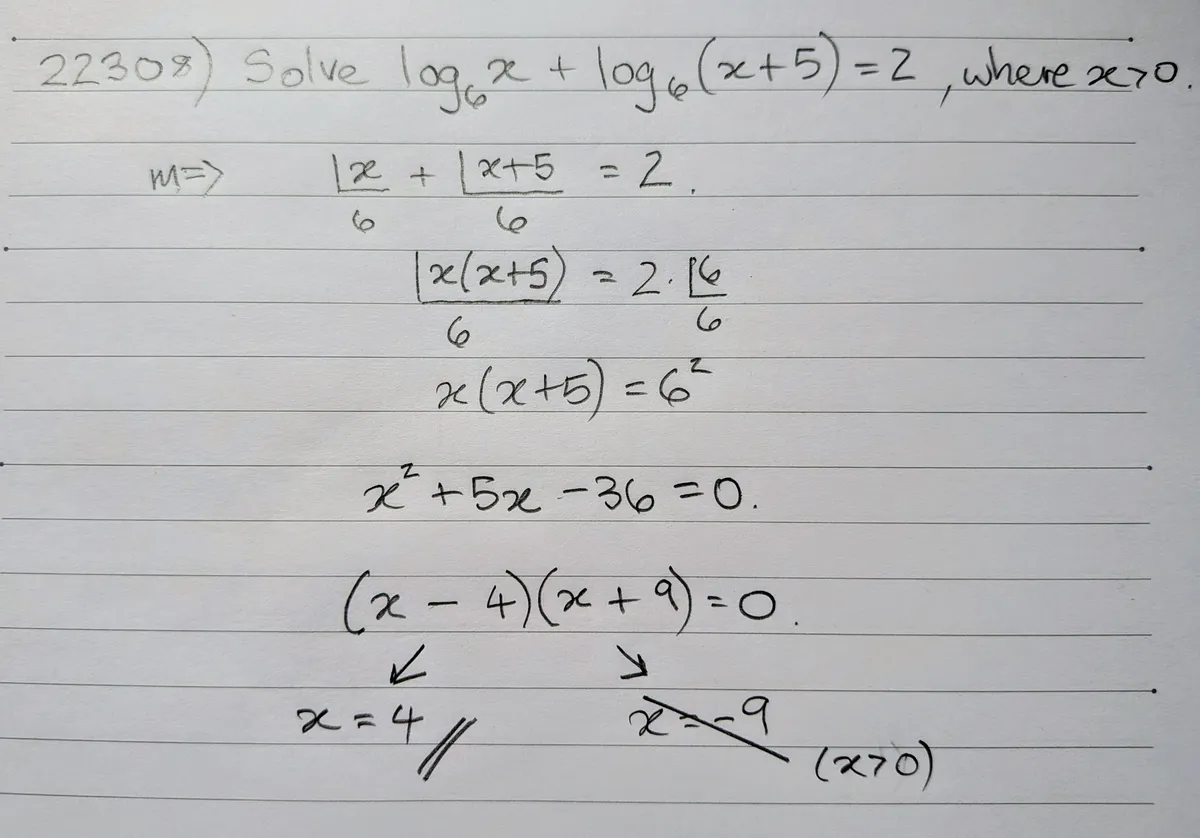 22308) Solve log₆x + log₆(x+5) = 2, where x>0.
m=> |x̲ + |x+5 = 2.
6 6
|x(x+5) = 2.|6
6 6
x(x+5) = 6²
x² + 5x - 36 = 0.
(x - 4)(x + 9) = 0.
↙ ↘
x = 4 // x = -9
(x>0)